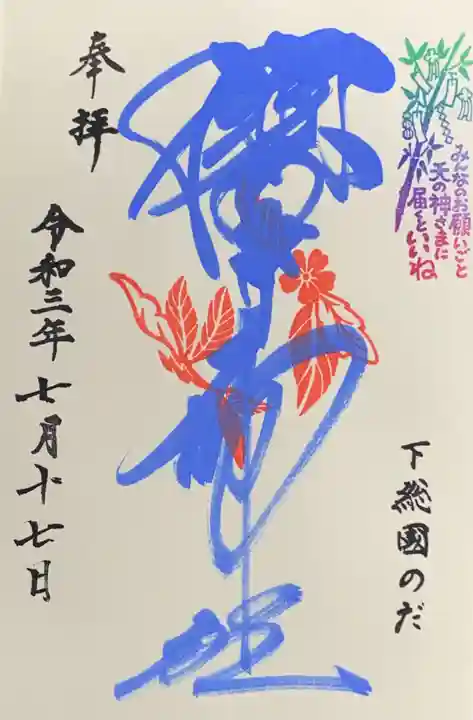 みんなのお願いごと
天の神さまに
届くといいね
下総國のだ
櫻木神社
奉拝
令和三年七月十七日